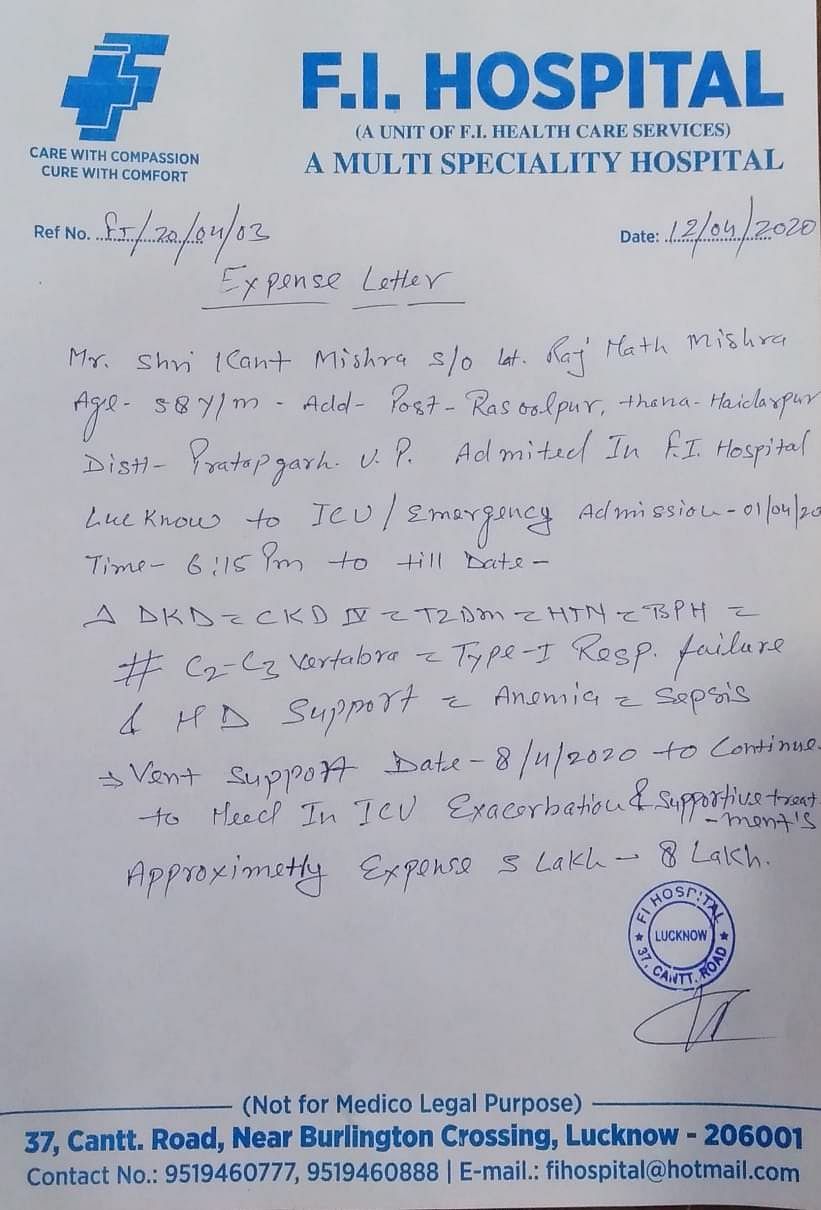 F.I. HOSPITAL
(A UNIT OF F.I. HEALTH CARE SERVICES)
A MULTI SPECIALITY HOSPITAL
CARE WITH COMPASSION
CURE WITH COMFORT
Ref No. FI/20/04/03
Date: 12/04/2020
Expense Letter
Mr. Shri Kant Mishra s/o Lat. Raj Nath Mishra
Age- 58 Y/M - Add- Post- Rasoolpur, thana- Haidarpur
Distt- Pratapgarh. U.P. Admited In F.I. Hospital
Lucknow to ICU/Emergency Admission-01/04/20
Time- 6:15 Pm to till Date-
Δ DKD = CKD IV = T2DM = HTN = BPH =
# C2-C3 Vertabra = Type-I Resp. failure
& HD Support = Anemia = Sepsis
⇒ Vent Support Date- 8/4/2020 to Continue
to Need In ICU Exacerbation & Supportive treat
-ment's
Approximetly Expense 5 Lakh - 8 Lakh.
FI HOSPITAL
LUCKNOW
37, CANTT. ROAD
(Not for Medico Legal Purpose)
37, Cantt. Road, Near Burlington Crossing, Lucknow - 206001
Contact No.: 9519460777, 9519460888 | E-mail.: fihospital@hotmail.com